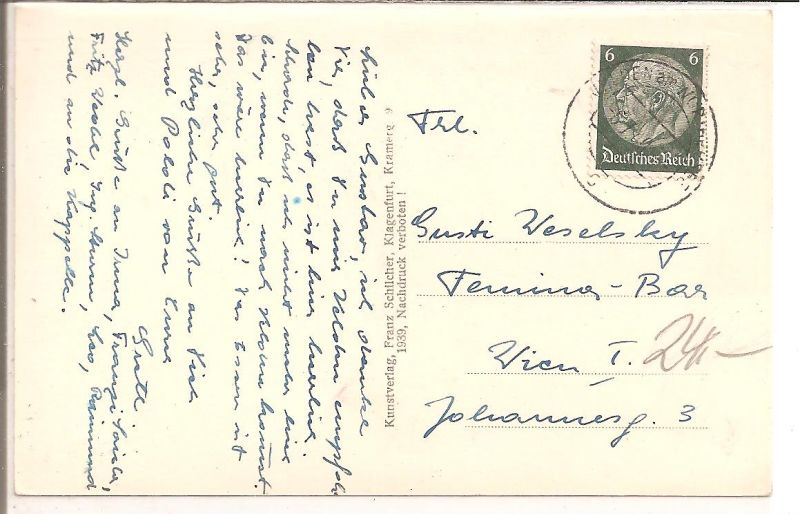 Liebes Gusterl, ich danke
Dir, daß Du mir Velden empfoh-
len hast, es ist hier herrlich.
Schade, daß ich nicht mehr hier
bin, wenn Du nach Velden kommst.
Das wäre herrlich! Das Essen ist
sehr, sehr gut.
Herzliche Grüße an Dich
und Poldi von Deiner
Gretl
Herzl. Grüße an Irma, Franzi,
Fritz, Ing. Sturm, Leo, Raimund
und an die Kappelle.
Kunstverlag, Franz Schilcher, Klagenfurt, Kramerg 9
1939, Nachdruck verboten!
6 6
Deutsches Reich
Frl.
Gusti Weselsky
Femina-Bar
Wien I.
Johannesg. 3
24-